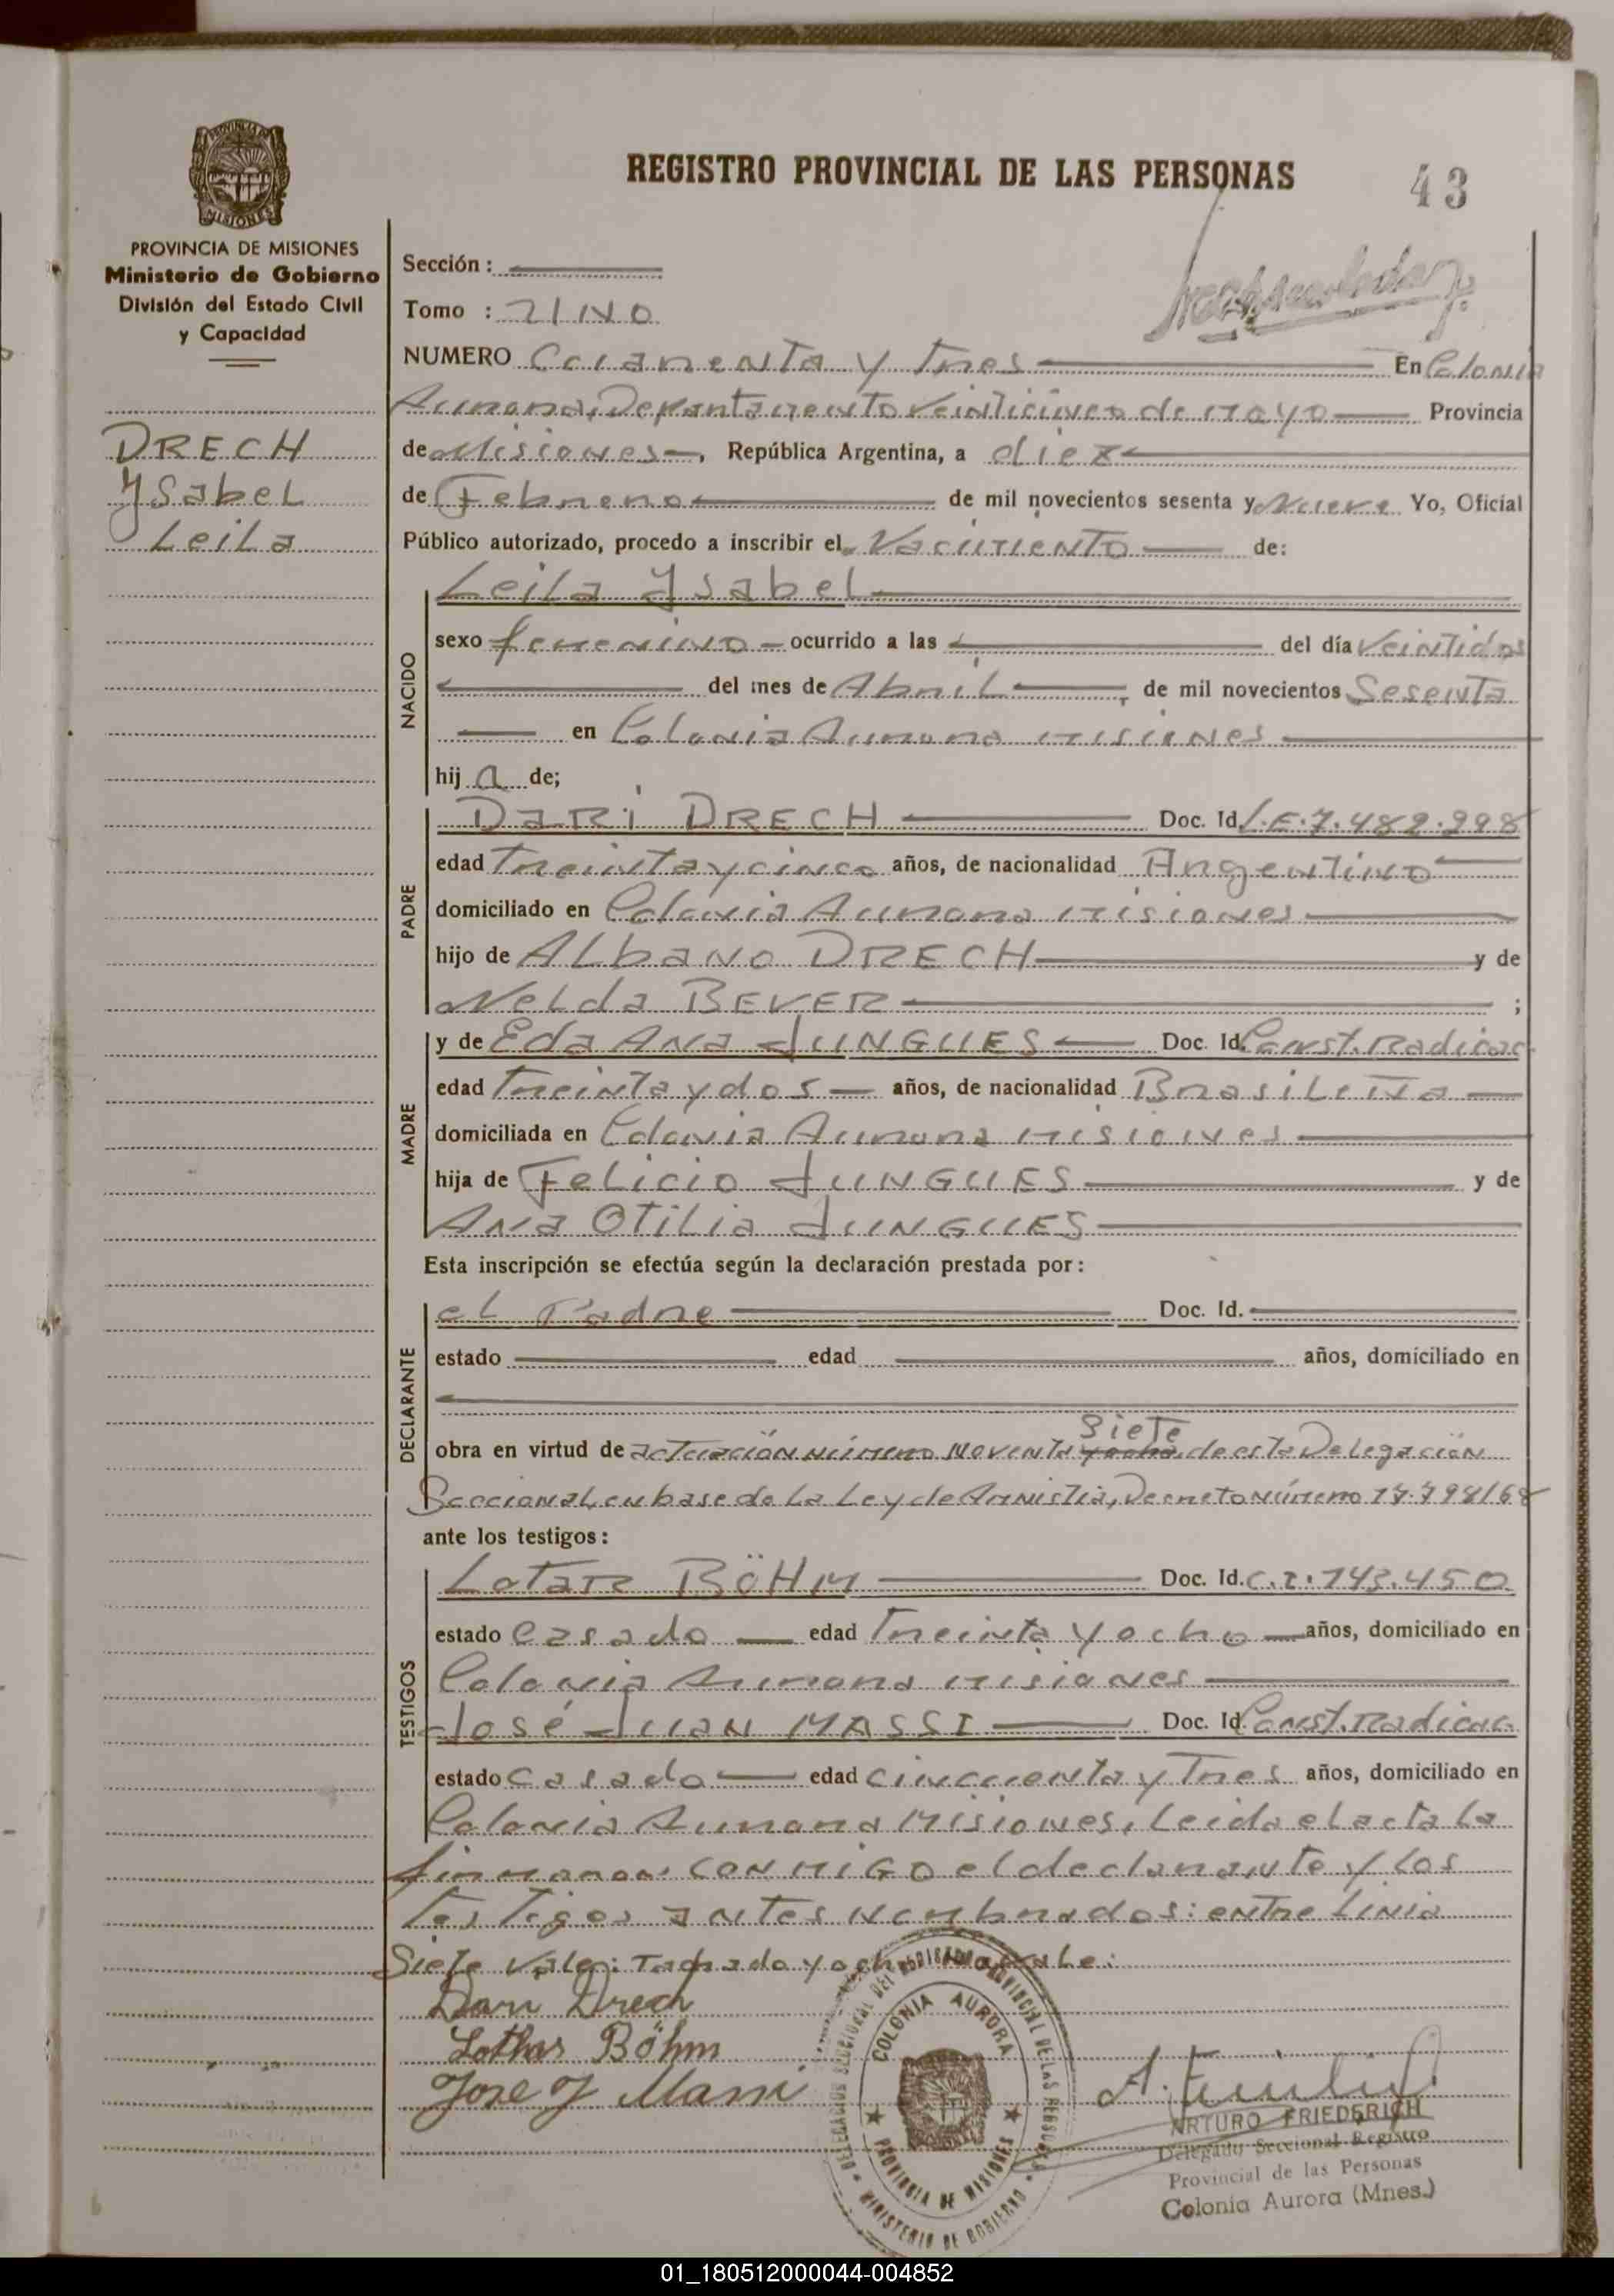 REGISTRO PROVINCIAL DE LAS PERSONAS
43
PROVINCIA DE MISIONES
Ministerio de Gobierno
División del Estado Civil
y Capacidad
DRECH
Ysabel
Leila
Sección :
Tomo : UNO
NUMERO Cuarenta y tres En Colonia
Aurora, Departamento Veinticinco de Mayo Provincia
de Misiones, República Argentina, a diez
de Febrero de mil novecientos sesenta y Nueve Yo, Oficial
Público autorizado, procedo a inscribir el Nacimiento de:
Leila Ysabel
NACIDO
sexo femenino ocurrido a las del día Veintidos
del mes de Abril, de mil novecientos Sesenta
en Colonia Aurora Misiones
hij a de;
PADRE
Dari DRECH Doc. Id. L.E. 7.482.998
edad Treinta y cinco años, de nacionalidad Argentino
domiciliado en Colonia Aurora Misiones
hijo de Albano DRECH y de
Nelda BEVER ;
MADRE
y de Eda Ana JUNGUES Doc. Id. Const. Radicac.
edad Treinta y dos años, de nacionalidad Brasileña
domiciliada en Colonia Aurora Misiones
hija de Felicio JUNGUES y de
Ana Otilia JUNGUES
Esta inscripción se efectúa según la declaración prestada por:
DECLARANTE
el Padre Doc. Id.
estado edad años, domiciliado en
siete
obra en virtud de actuación número Noventa y ocho de esta Delegación
Seccional, en base de la Ley de Amnistia, Decreto número 17.798/68
ante los testigos:
TESTIGOS
Lotar BÖHM Doc. Id. C.I. 743.450
estado Casado edad Treinta y ocho años, domiciliado en
Colonia Aurora Misiones
José Juan MASSI Doc. Id. Const. Radicac.
estado Casado edad Cincuenta y Tres años, domiciliado en
Colonia Aurora Misiones, Leida el acta la
firmaron conmigo el declarante y los
Testigos antes nombrados: entre linia
Siete Vale: Tachado y ocho no vale:
Dari Drech
Lothar Böhm
Jose J Massi
DELEGACION SECCIONAL DEL REGISTRO PROVINCIAL DE LAS PERSONAS
COLONIA AURORA
PROVINCIA DE MISIONES
MINISTERIO DE GOBIERNO
ARTURO FRIEDERICH
Delegado Seccional Registro
Provincial de las Personas
Colonia Aurora (Mnes.)
01_180512000044-004852